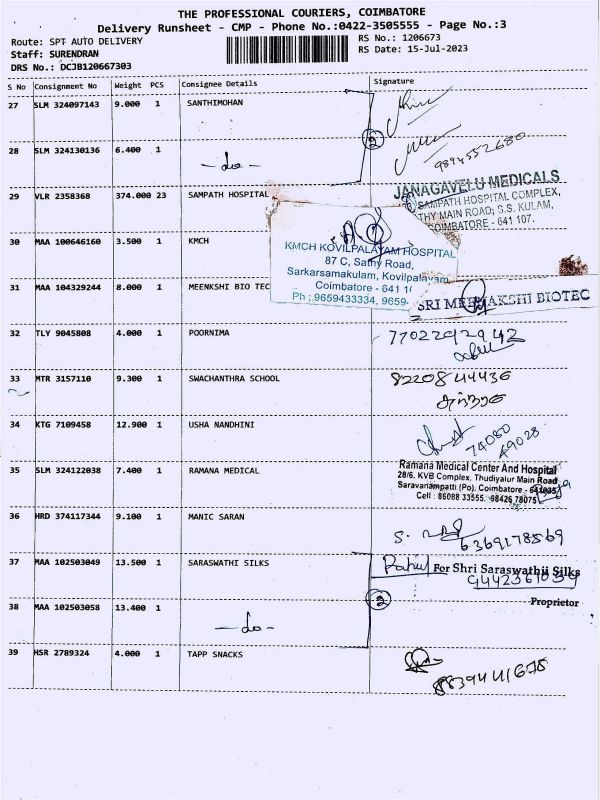 THE PROFESSIONAL COURIERS, COIMBATORE
Delivery Runsheet - CMP - Phone No.:0422-3505555 - Page No.:3
Route: SPT AUTO DELIVERY
RS No.: 1206673
Staff: SURENDRAN
RS Date: 15-Jul-2023
DRS No.: DCJB120667303
S No Consignment No Weight PCS Consignee Details Signature
27 SLM 324097143 9.000 1 SANTHIMOHAN
2
28 SLM 324130136 6.400 1 -do- 9894552680
29 VLR 2358368 374.000 23 SAMPATH HOSPITAL
JANAGAVELU MEDICALS
SAMPATH HOSPITAL COMPLEX,
THY MAIN ROAD, S.S. KULAM,
COIMBATORE - 641 107.
30 MAA 100646160 3.500 1 KMCH
KMCH KOVILPALAYAM HOSPITAL
87 C, Sathy Road,
Sarkarsamakulam, Kovilpalayam
Coimbatore - 641 1
Ph : 9659433334, 9659
31 MAA 104329244 8.000 1 MEENKSHI BIO TEC
SRI MEENAKSHI BIOTEC
32 TLY 9045808 4.000 1 POORNIMA
33 MTR 3157110 9.300 1 SWACHANTHRA SCHOOL
8220844436
34 KTG 7109458 12.900 1 USHA NANDHINI
74080
49028
35 SLM 324122038 7.400 1 RAMANA MEDICAL
Ramana Medical Center And Hospital
28/6, KVB Complex, Thudiyalur Main Road
Saravanampatti (Po), Coimbatore - 641035
Cell : 86088 33555, 98426 78075
36 HRD 374117344 9.100 1 MANIC SARAN
6369178569
37 MAA 102503049 13.500 1 SARASWATHI SILKS
Rahul For Shri Saraswathii Silks
Proprietor
2
38 MAA 102503058 13.400 1 -do-
39 HSR 2789324 4.000 1 TAPP SNACKS
8839441678